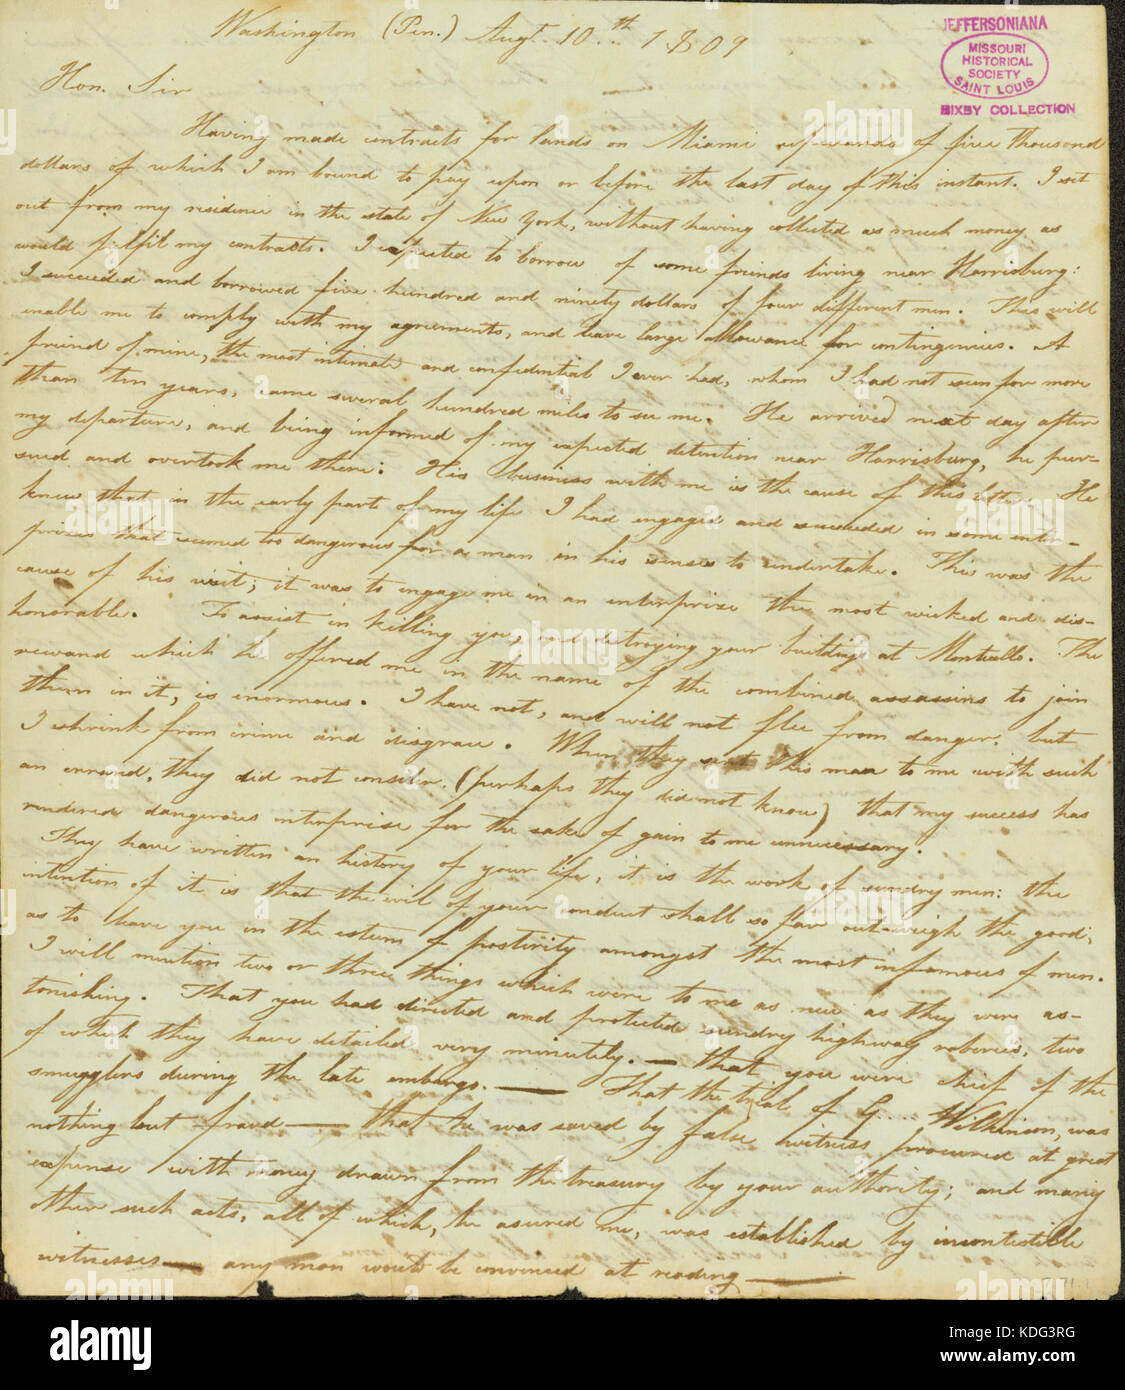 Washington (Pen.) Augt. 10.th 1809
JEFFERSONIANA
MISSOURI
HISTORICAL
SOCIETY
SAINT LOUIS
BIXBY COLLECTION
Hon. Sir
Having made contracts for lands on Miami upwards of five thousand
dollars of which I am bound to pay upon or before the last day of this instant. I set
out from my residence in the state of New York, without having collected as much money as
would fulfil my contracts. I expected to borrow of some friends living near Harrisburg:
I succeeded and borrowed five hundred and ninety dollars of four different men. This will
enable me to comply with my agreements, and leave large allowance for contingencies. A
friend of mine, the most intimate and confidential I ever had, whom I had not seen for more
than ten years, came several hundred miles to see me. He arrived next day after
my departure, and being informed of my expected detention near Harrisburg, he pur-
sued and overtook me there: His business with me is the cause of this letter. He
knew that in the early part of my life I had engaged and succeeded in some enter-
prizes that seemed too dangerous for a man in his senses to undertake. This was the
cause of his visit; it was to engage me in an enterprize the most wicked and dis-
honorable. To assist in killing you, and destroying your buildings at Monticello. The
reward which he offered me in the name of the combined assassins to join
them in it, is enormous. I have not, and will not flee from danger, but
I shrink from crime and disgrace. When they sent this man to me with such
an errand, they did not consider, (perhaps they did not know) that my success has
rendered dangerous enterprise for the sake of gain to me unnecessary.
They have written an history of your life, it is the work of sundry men: the
intention of it is that the evil of your conduct shall so far out-weigh the good,
as to leave you in the esteem of posterity amongst the most infamous of men.
I will mention two or three things which were to me as new as they were as-
tonishing. That you had directed and protected sundry highway roberies, two
of which they have detailed very minutely. — that you were chief of the
smugglers during the late embargo. — That the trial of G.... Wilkinson, was
nothing but fraud — that he was saved by false witness procured at great
expense with money drawn from the treasury by your authority; and many
other such acts, all of which, he asured me, was established by incontestible
witnesses — any man would be convinced at reading —
alamy
Image ID: KDG3RG
www.alamy.com